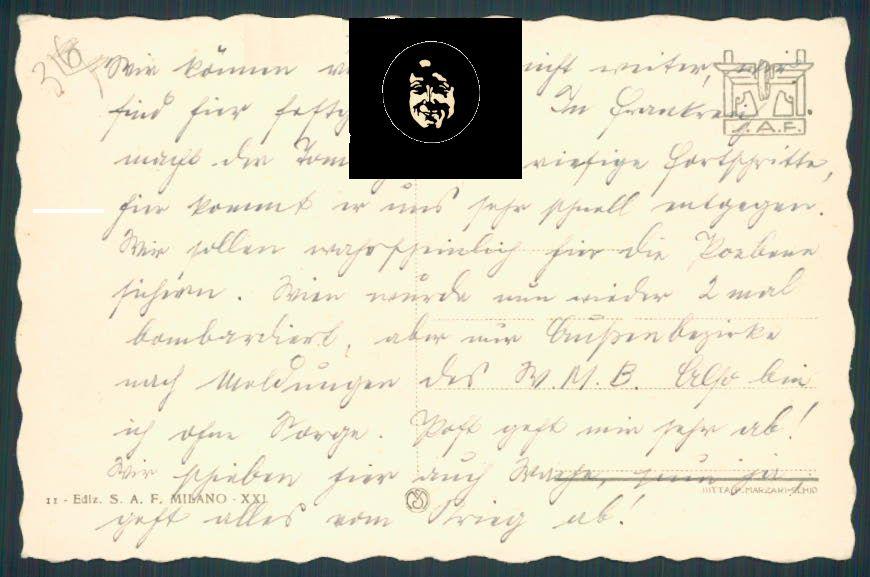 3
Wir können nicht weiter, wir
sind hier In Frankrei
macht der Tom riesige Fortschritte,
hier kommt er uns sehr schnell entgegen.
Wir sollen wahrscheinlich hier die Poebene
sichern. Wien wurde nun wieder 2 mal
bombardiert, aber nur Außenbezirke
nach Meldungen des W.M.B. Also bin
ich ohne Sorge. Post geht mir sehr ab!
Wir schieben hier auch Wache,
geht alles vom Krieg ab!
S.A.F.
11 - Ediz. S. A. F. MILANO - XXI
DITTA P. MARZARI-SCHIO